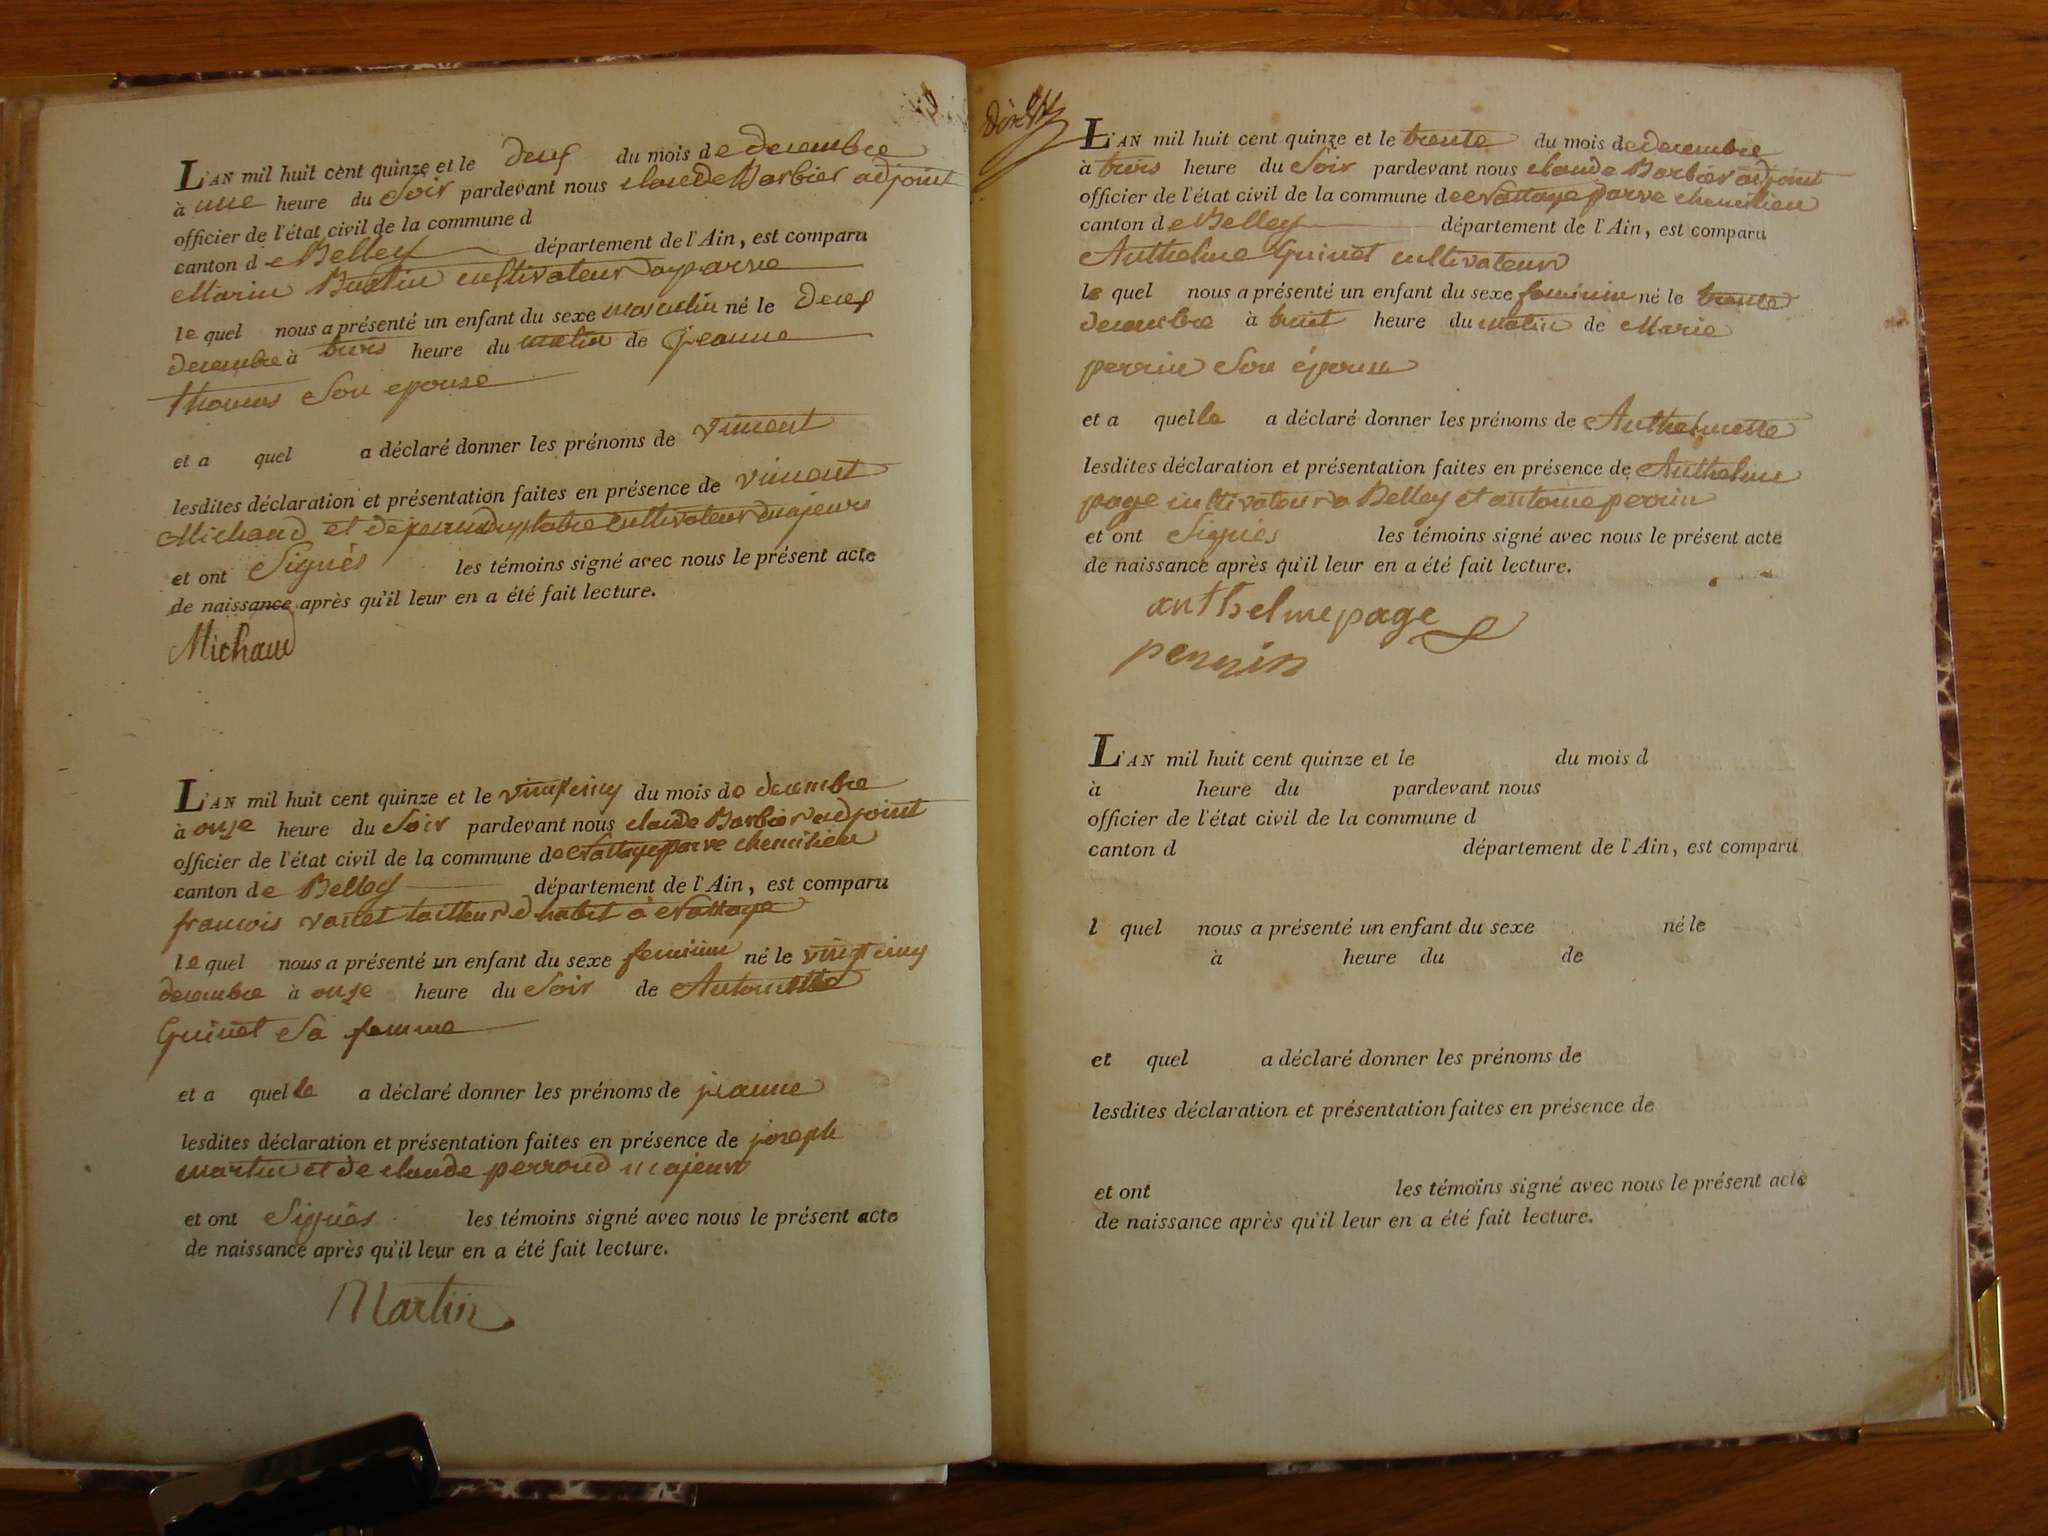 L'AN mil huit cent quinze et le deux du mois de decembre
à une heure du Soir pardevant nous claude Barbier adjoint
officier de l'état civil de la commune d
canton de Belley département de l'Ain, est comparu
Marin cultivateur a parve
le quel nous a présenté un enfant du sexe masculin né le deux
decembre à trois heure du matin de jeanne
thomas Son epouse
et a quel a déclaré donner les prénoms de vincent
lesdites déclaration et présentation faites en présence de vincent
Michaud et de cultivateur majeurs
et ont Signés les témoins signé avec nous le présent acte
de naissance après qu'il leur en a été fait lecture.
Michaud
L'AN mil huit cent quinze et le vingt cinq du mois de decembre
à onze heure du Soir pardevant nous claude Barbier adjoint
officier de l'état civil de la commune de Nattage parve chemilieu
canton de Belley département de l'Ain, est comparu
francois tailleur d habit à Nattage
le quel nous a présenté un enfant du sexe feminin né le vingt cinq
decembre à onze heure du Soir de Antoinette
Guinet Sa femme
et a quelle a déclaré donner les prénoms de jeanne
lesdites déclaration et présentation faites en présence de joseph
martin et de claude perroud majeurs
et ont Signés les témoins signé avec nous le présent acte
de naissance après qu'il leur en a été fait lecture.
Martin
L'AN mil huit cent quinze et le trente du mois de decembre
à trois heure du Soir pardevant nous claude Barbier adjoint
officier de l'état civil de la commune de Nattage parve chemilieu
canton de Belley département de l'Ain, est comparu
Anthelme Guinet cultivateur
le quel nous a présenté un enfant du sexe feminin né le trente
decembre à huit heure du matin de Marie
perrin Son épouse
et a quelle a déclaré donner les prénoms de Anthelmette
lesdites déclaration et présentation faites en présence de Anthelme
page cultivateur a Belley et antoine perrin
et ont Signés les témoins signé avec nous le présent acte
de naissance après qu'il leur en a été fait lecture.
anthelme page
perrin
L'AN mil huit cent quinze et le du mois d
à heure du pardevant nous
officier de l'état civil de la commune d
canton d département de l'Ain, est comparu
l quel nous a présenté un enfant du sexe né le
à heure du de
et quel a déclaré donner les prénoms de
lesdites déclaration et présentation faites en présence de
et ont les témoins signé avec nous le présent acte
de naissance après qu'il leur en a été fait lecture.